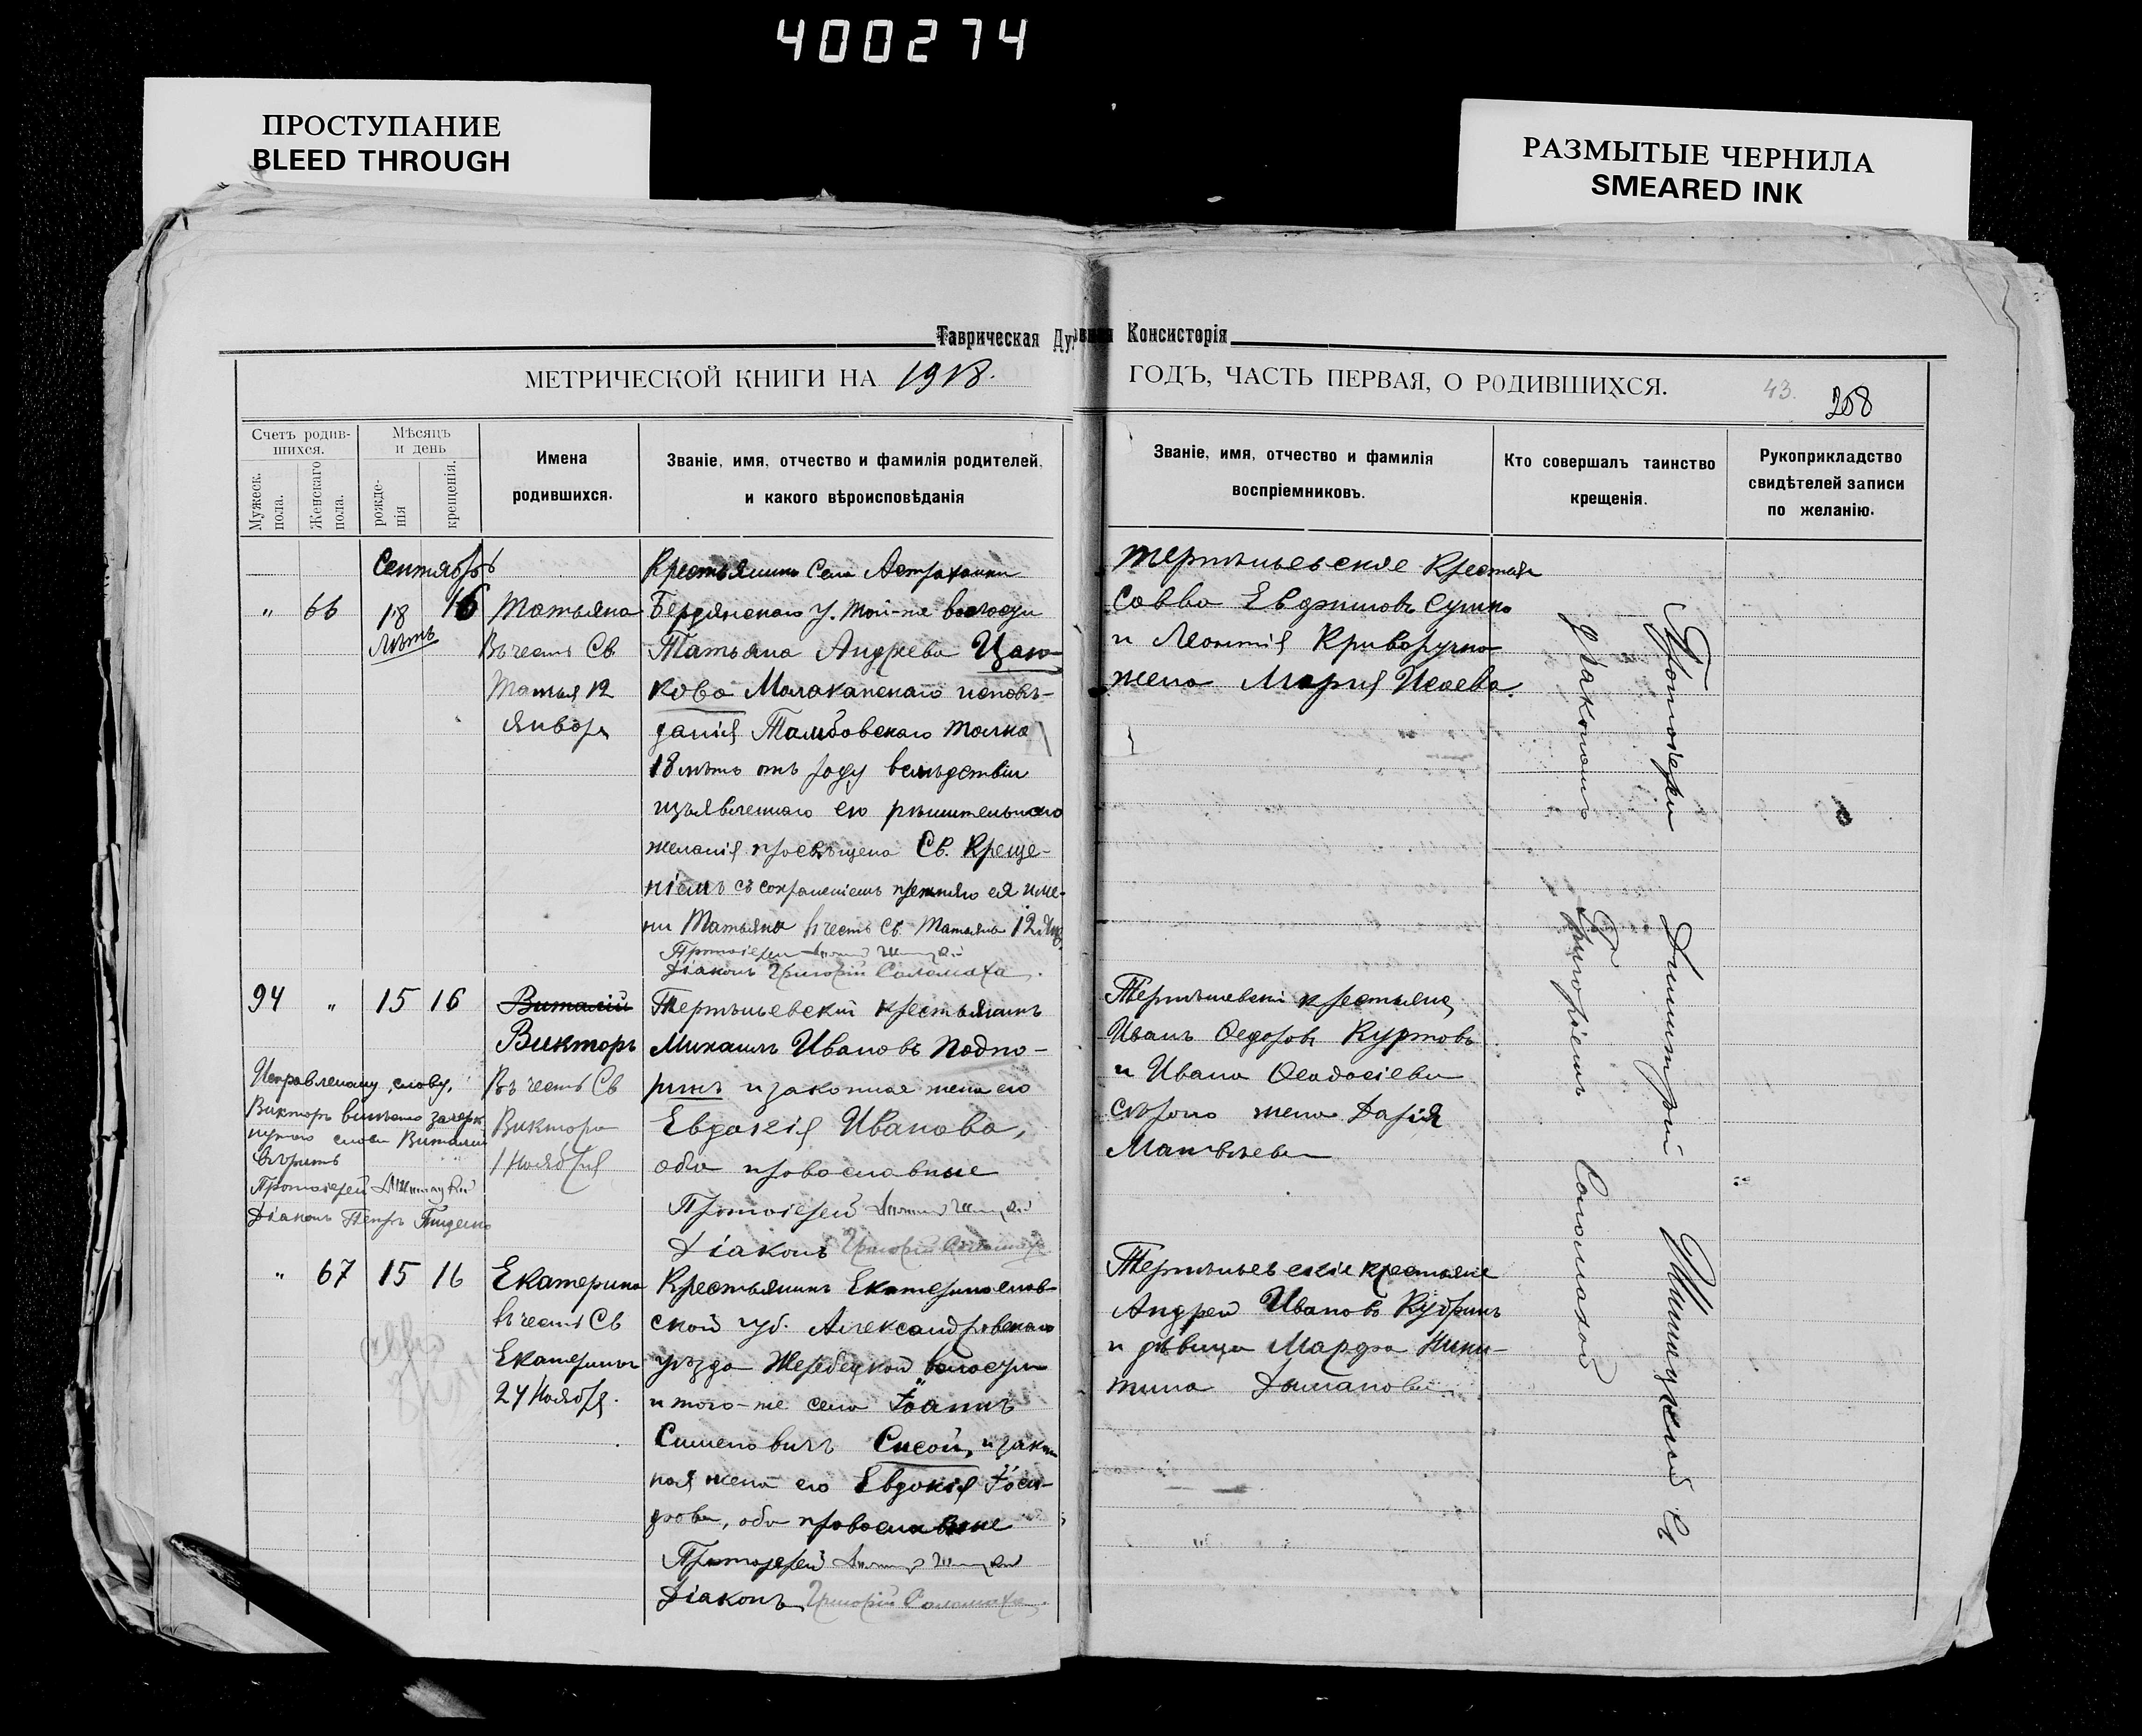 400274
ПРОСТУПАНИЕ
BLEED THROUGH
РАЗМЫТЫЕ ЧЕРНИЛА
SMEARED INK
Таврическая Духовная Консисторія
МЕТРИЧЕСКОЙ КНИГИ НА 1918.
ГОДЪ, ЧАСТЬ ПЕРВАЯ, О РОДИВШИХСЯ.
43.
208
Счетъ родив-
шихся.
Мужеск.
пола.
Женскаго
пола.
Мѣсяцъ
и день
рожде-
нія
крещенія.
Имена
родившихся.
Званіе, имя, отчество и фамилія родителей,
и какого вѣроисповѣданія
Званіе, имя, отчество и фамилія
воспріемниковъ.
Кто совершалъ таинство
крещенія.
Рукоприкладство
свидѣтелей записи
по желанію.
Сентябрь
" 66 18 16
лѣтъ
Татьяна
Въ честь Св
Татья 12
Январ
Села Астраханки
Бердянскаго у. той-же волости
Татьяна Андреева Цаю-
кова Молоканскаго исповѣ-
данія Тамбовскаго толка
18 лѣтъ отъ роду вслѣдствіи
изъявленнаго ею рѣшительнаго
желанія просвѣщена Св. Креще-
ніемъ съ сохраненіемъ прежняго ея име-
ни Татьяна въ честь Св. Татьяны 12 Янв.
Протоіерей
Діаконъ Григорій Соломаха.
Савва Евфимовъ Сушко
и Леонтія Криворучко
жена Марія Исаева.
94 " 15 16
Виталій
Викторъ
Въ честь Св
Виктора
1 Ноября
Исправленому слову,
Викторъ вмѣсто зачерк
нутого слова Виталій
вѣрить
Протоіерей
Діаконъ Петръ
Терпѣньевскій крестьянинъ
Михаилъ Ивановъ Подпо-
ринъ и законная жена его
Евдокія Иванова,
оба православные
Протоіерей
Діаконъ Григорій Соломаха
Иванъ Федоровъ Куртовъ
и Ивана Феодосіева
жена Дарія
Матвѣева
" 67 15 16
Екатерина
въ честь Св
Екатерины
24 Ноября.
Крестьянинъ Екатеринослав-
ской губ. Александровскаго
уѣзда Жеребецкой волости
и того-же села Іоаннъ
Симеоновичъ Сисой, и закон
ная жена его Евдокія Іоси-
фова, оба православные
Протоіерей
Діаконъ Григорій Соломаха.
Терпѣньевскіе крестьяне
Андрей Ивановъ Кубринъ
и дѣвица Марфа Ники-
тина
Протоіерей Димитрій
Діакономъ Григоріемъ Соломахой